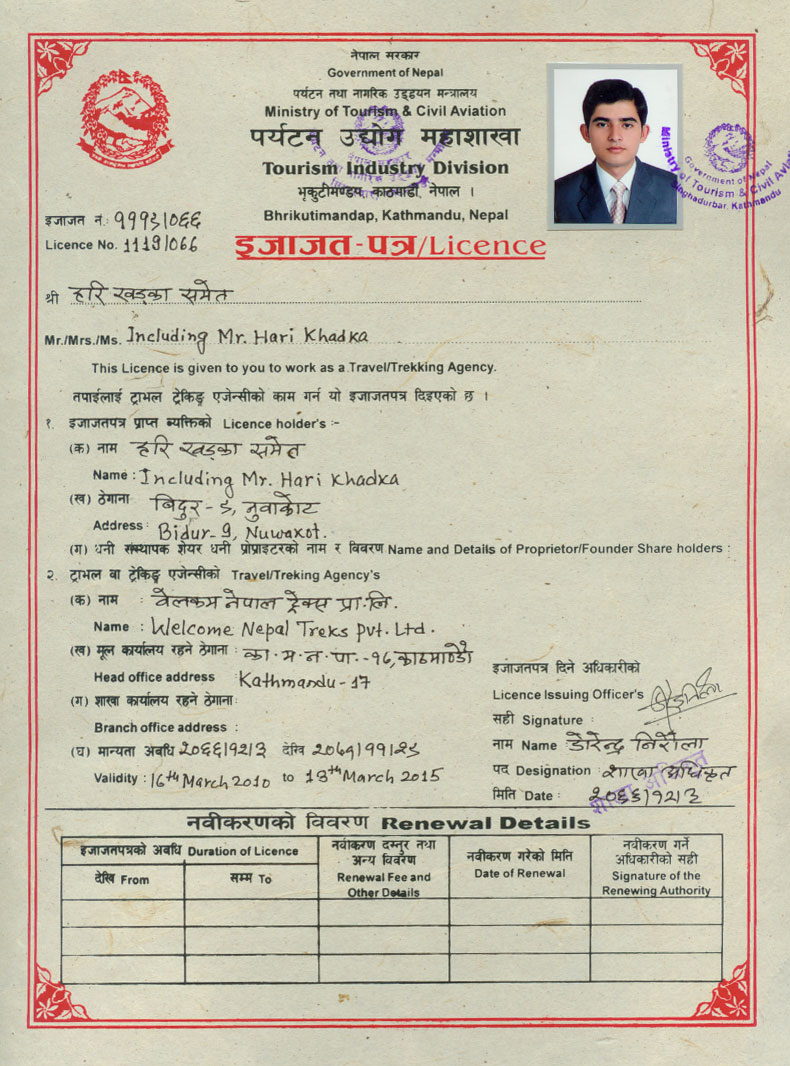 नेपाल सरकार
Government of Nepal
पर्यटन तथा नागरिक उड्डयन मन्त्रालय
Ministry of Tourism & Civil Aviation
पर्यटन उद्योग महाशाखा
Tourism Industry Division
भृकुटीमण्डप, काठमाडौं, नेपाल ।
Bhrikutimandap, Kathmandu, Nepal
Ministry of Tourism & Civil Avia
Government of Nepal
Singhadurbar, Kathmandu
इजाजत नं. ११११/०६६
Licence No. 1119/066
इजाजत-पत्र/Licence
श्री हरि खड्का समेत
Mr./Mrs./Ms. Including Mr. Hari Khadka
This Licence is given to you to work as a Travel/Trekking Agency.
तपाईलाई ट्राभल ट्रेकिङ्ग एजेन्सीको काम गर्न यो इजाजतपत्र दिइएको छ ।
१. इजाजतपत्र प्राप्त व्यक्तिको Licence holder's :-
(क) नाम हरि खड्का समेत
Name : Including Mr. Hari Khadka
(ख) ठेगाना बिदुर - ९, नुवाकोट
Address : Bidur-9, Nuwakot.
(ग) धनी संस्थापक शेयर धनी प्रोप्राइटरको नाम र विवरण Name and Details of Proprietor/Founder Share holders :
२. ट्राभल वा ट्रेकिङ्ग एजेन्सीको Travel/Treking Agency's
(क) नाम : वेलकम नेपाल ट्रेक्स प्रा.लि.
Name : Welcome Nepal Treks Pvt. Ltd.
(ख) मूल कार्यालय रहने ठेगाना : का.म.न.पा.-१६, काठमाण्डौ
Head office address : Kathmandu-17
(ग) शाखा कार्यालय रहने ठेगाना :
Branch office address :
(घ) मान्यता अवधि २०६६/१२/३ देखि २०७१/११/२९
Validity : 16th March 2010 to 13th March 2015
इजाजतपत्र दिने अधिकारीको
Licence Issuing Officer's
सही Signature :
नाम Name :
पद Designation : शाखा अधिकृत
शाखा अधिकृत
मिति Date : २०६६/१२/३
नवीकरणको विवरण Renewal Details
इजाजतपत्रको अवधि Duration of Licence
देखि From
सम्म To
नवीकरण दस्तुर तथा
अन्य विवरण
Renewal Fee and
Other Details
नवीकरण गरेको मिति
Date of Renewal
नवीकरण गर्ने
अधिकारीको सही
Signature of the
Renewing Authority